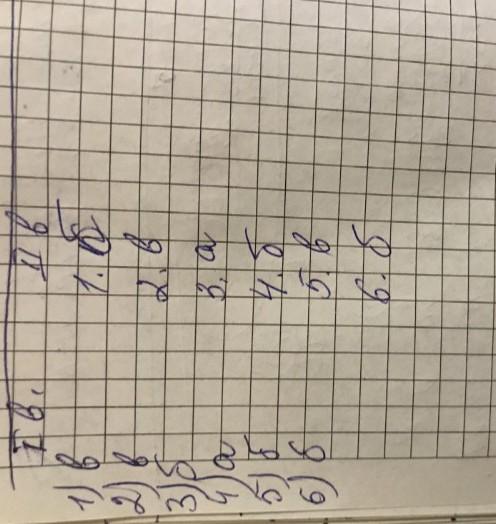 I в. II в
1) в 1. б
2) в 2. в
3) б 3. а
4) а 4. б
5) б 5. в
6) б 6. б